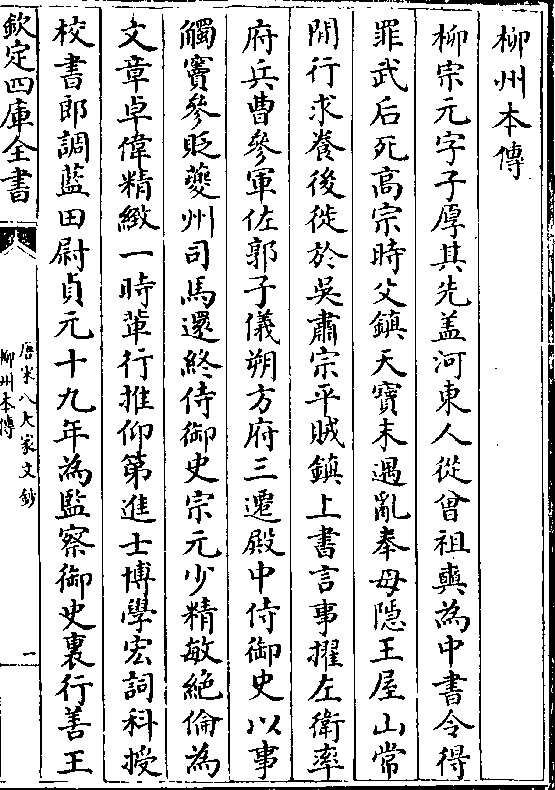 柳州本傳
柳宗元字子厚其先蓋河東人從曾祖奭為中書令得
罪武后死高宗時父鎮天寶末遇亂奉母隱王屋山常
間行求養後徙於吳肅宗平賊鎮上書言事擢左衛率
府兵曹參軍佐郭子儀朔方府三遷殿中侍御史以事
觸竇參貶夔州司馬還終侍御史宗元少精敏絶倫為
文章卓偉精緻一時輩行推仰第進士博學宏詞科授
校書郎調藍田尉貞元十九年為監察御史裏行善王
欽定四庫全書
唐宋八大家文鈔
柳州本傳
一